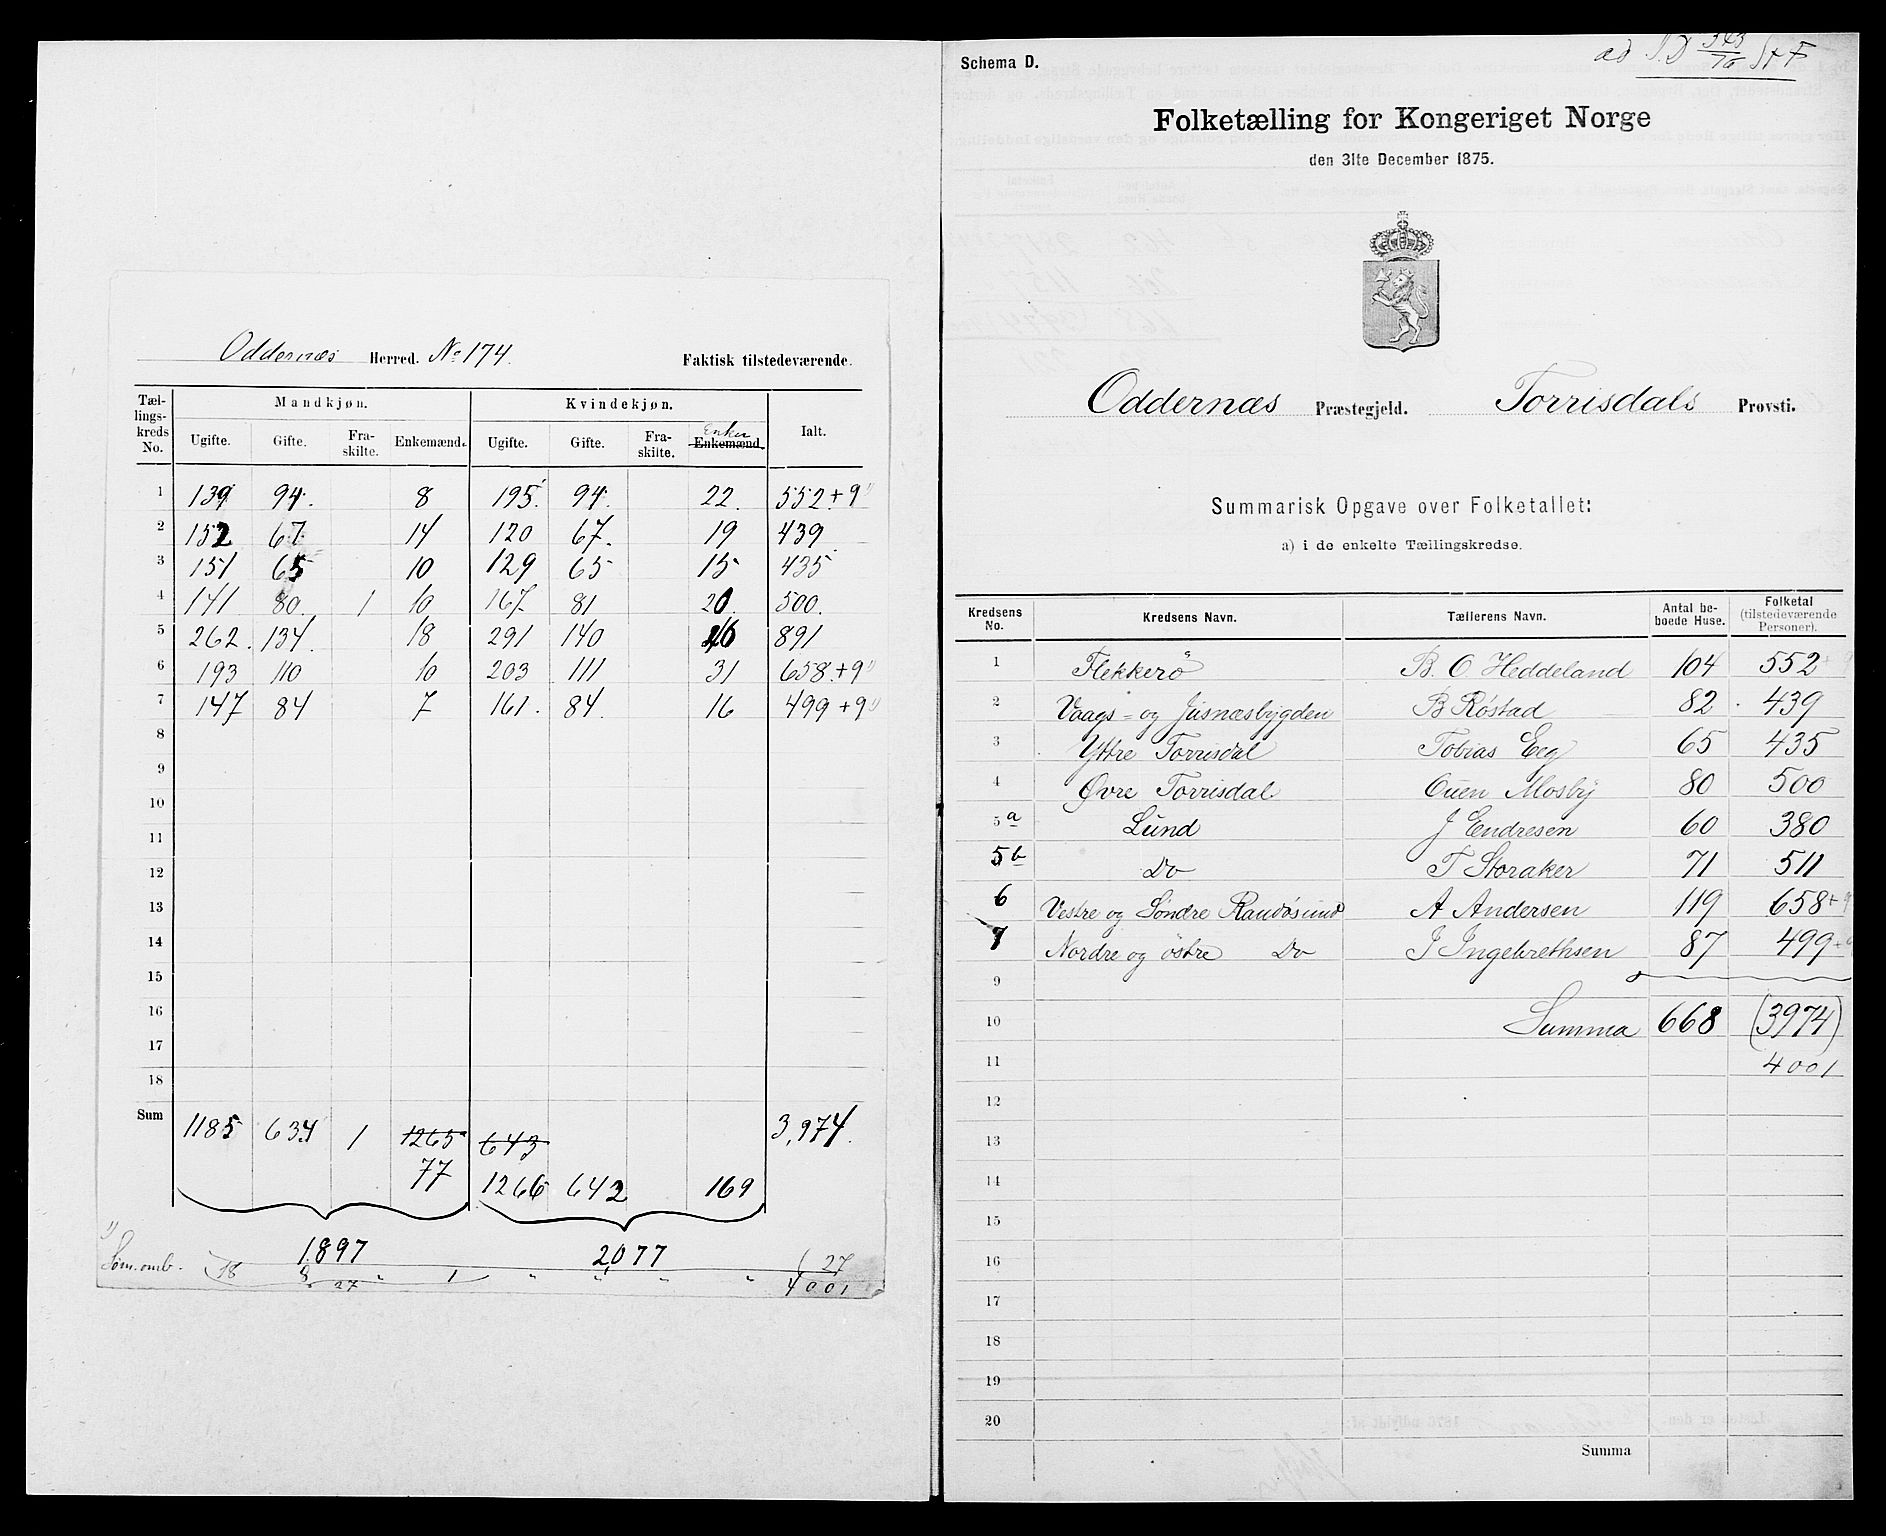 Oddernæs Herred. No 174. Faktisk tilstedeværende.
Tællingskreds No. Mandkjøn. Kvindekjøn. Ialt.
Ugifte. Gifte. Fraskilte. Enkemænd. Ugifte. Gifte. Fraskilte. Enkemænd. Enker
1 139 94 8 195 94 22 552 + 9 1)
2 152 67 14 120 67 19 439
3 151 65 10 129 65 15 435
4 141 80 1 10 167 81 20 500
5 262 134 18 291 140 46 891
6 193 110 10 203 111 31 658 + 9 1)
7 147 84 7 161 84 16 499 + 9 1)
8
9
10
11
12
13
14
15
16
17
18
Sum 1185 634 1 1265 643 3,974.
77 1266 642 169
1897 2077
1) Søm.omb. 18 8 " 1 " " " " 27
27 4001
Schema D.
ad
Folketælling for Kongeriget Norge
den 31te December 1875.
Oddernæs Præstegjeld. Torrisdals Provsti.
Summarisk Opgave over Folketallet:
a) i de enkelte Tællingskredse.
Kredsens No. Kredsens Navn. Tællerens Navn. Antal beboede Huse. Folketal (tilstedeværende Personer).
1 Flekkerö B. O. Heddeland 104 552 + 9
2 Vaags- og Jusnæsbygden B Røstad 82 439
3 Yttre Torrisdal Tobias Eeg 65 435
4 Øvre Torrisdal Ouen Mosby 80 500
5 a Lund J Endresen 60 380
5 b Do T Storaker 71 511
6 Vestre og Söndre Randösund A Andersen 119 658 + 9
7 Nordre og östre Do J Ingebrethsen 87 499 + 9
9
10 Summa 668 (3974)
11 4001
12
13
14
15
16
17
18
19
20
Summa